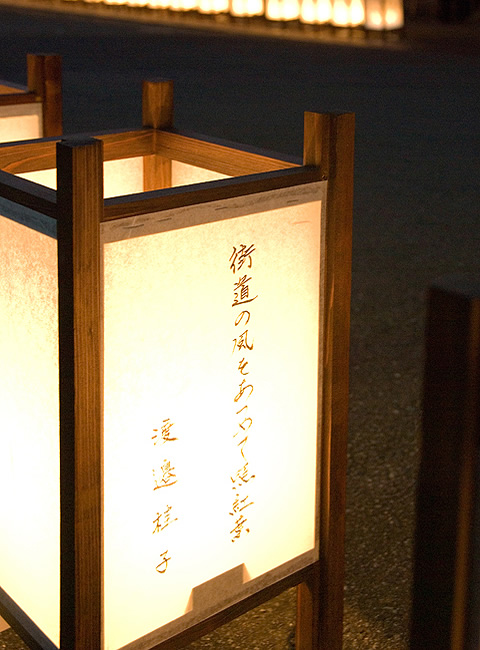 街道の風をあつめて照紅葉
渡邊桂子